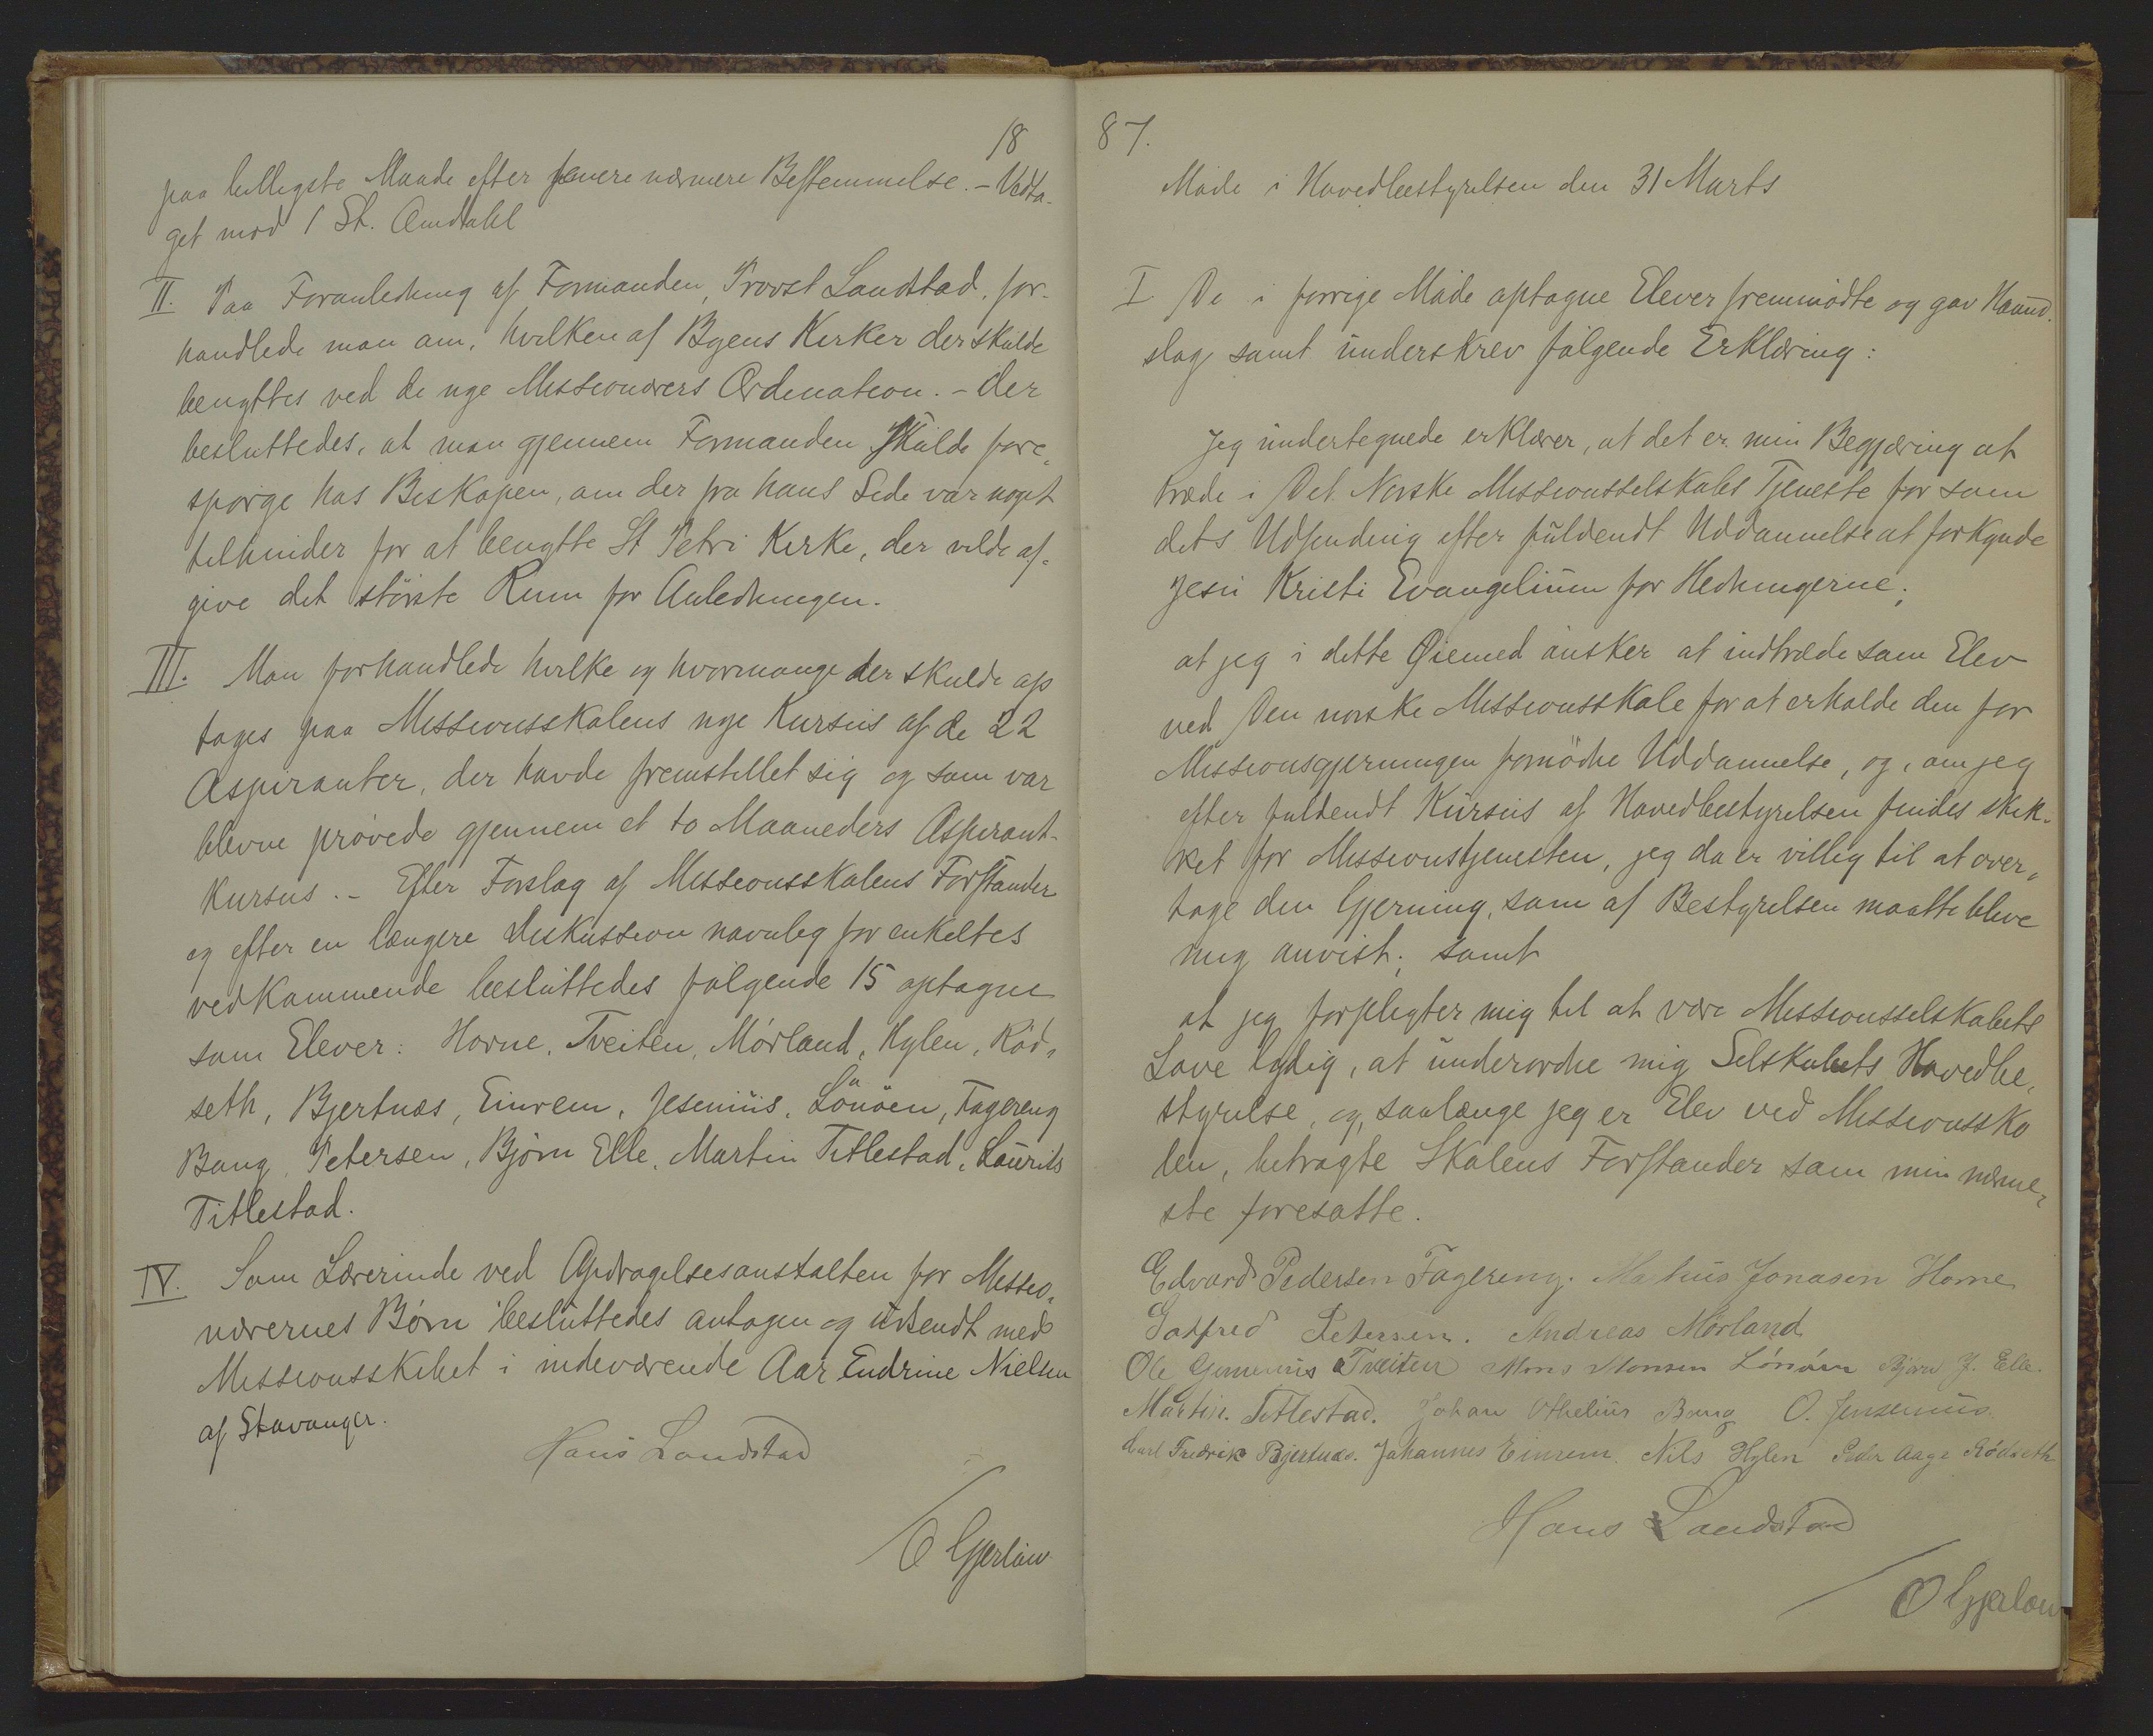 18
paa billigste Maade efter senere nærmere Bestemmelse. - Vedta-
get mod 1 St. Amdahl
II. Paa Foranledning af Formanden, Provst Landstad, for-
handlede man om, hvilken af Byens Kirker der skulde
benyttes ved de nye Missionærers Ordination. - Der
besluttedes, at man gjennem Formanden skulde fore-
spørge hos Biskopen, om der fra hans Side var noget
tilhinder for at benytte St Petri Kirke, der vilde af-
give det største Rum for Anledningen.
III. Man forhandlede hvilke og hvormange der skulde op
tages paa Missionsskolens nye Kursus af de 22
Aspiranter, der havde fremstillet sig og som var
blevne prøvede gjennem et to Maaneders Aspirant-
kursus. - Efter Forslag af Missionsskolens Forstander
og efter en længere Diskussion navnlig for enkeltes
vedkommende besluttedes følgende 15 optagne
som Elever: Horne, Tveiten, Mørland, Hylen, Rød-
seth, Bjertnæs, Einrem, Jesenius, Lönöen, Fagereng
Bang, Petersen, Bjørn Elle, Martin Titlestad, Laurits
Titlestad.
IV. Som Lærerinde ved Opdragelsesanstalten for Missio-
nærernes Børn besluttedes antagen og udsendt med
Missionsskibet i indeværende Aar Endrine Nielsen
af Stavanger.
Hans Landstad
/ O Gjerløw
87.
Møde i Hovedbestyrelsen den 31 Marts
I De i forrige Møde optagne Elever fremmødte og gav Haand-
slag samt underskrev følgende Erklæring:
Jeg undertegnede erklærer, at det er min Begjæring at
træde i Det Norske Missionsselskabs Tjeneste for som
dets Udsending efter fuldendt Uddannelse at forkynde
Jesu Kristi Evangelium for Hedningerne;
at jeg i dette Øiemed ønsker at indtræde som Elev
ved Den norske Missionsskole for at erholde den for
Missionsgjerningen fornødne Uddannelse, og, om jeg
efter fuldendt Kursus af Hovedbestyrelsen findes skik-
ket for Missionstjenesten, jeg da er villig til at over-
tage den Gjerning, som af Bestyrelsen maatte blive
mig anvist; samt
at jeg forpligter mig til at være Missionsselskabets
Love lydig, at underordne mig Selskabets Hovedbe-
styrelse, og, saalænge jeg er Elev ved Missionssko
len, betragte Skolens Forstander som min nærme-
ste foresatte.
Edvard Pedersen Fagereng. Markus Jonasen Horne
Gotfred Petersen. Andreas Mørland
Ole Tveiten Mons Monsen Lönöen Bjørn J. Elle.
Martin. Titlestad. Johan Othelius Bang O. Jensenius
Carl Fredrik Bjertnæs. Johannes Einrem. Nils Hylen Peder Aage Rødseth
Hans Landstad
/ O Gjerløw